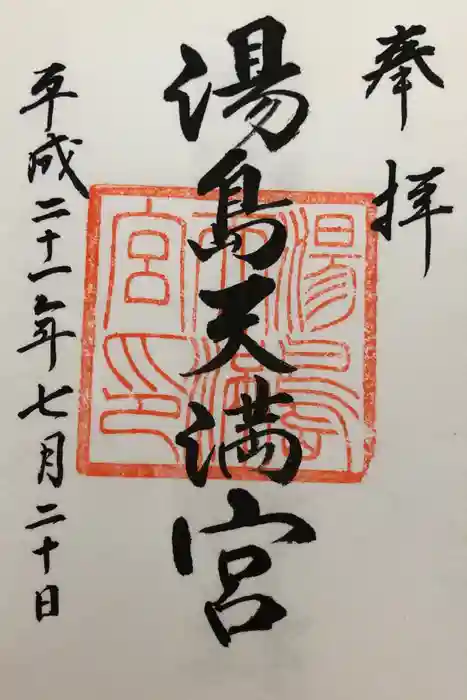 奉拝
湯島天満宮
湯島天満宮印
平成二十一年七月二十日